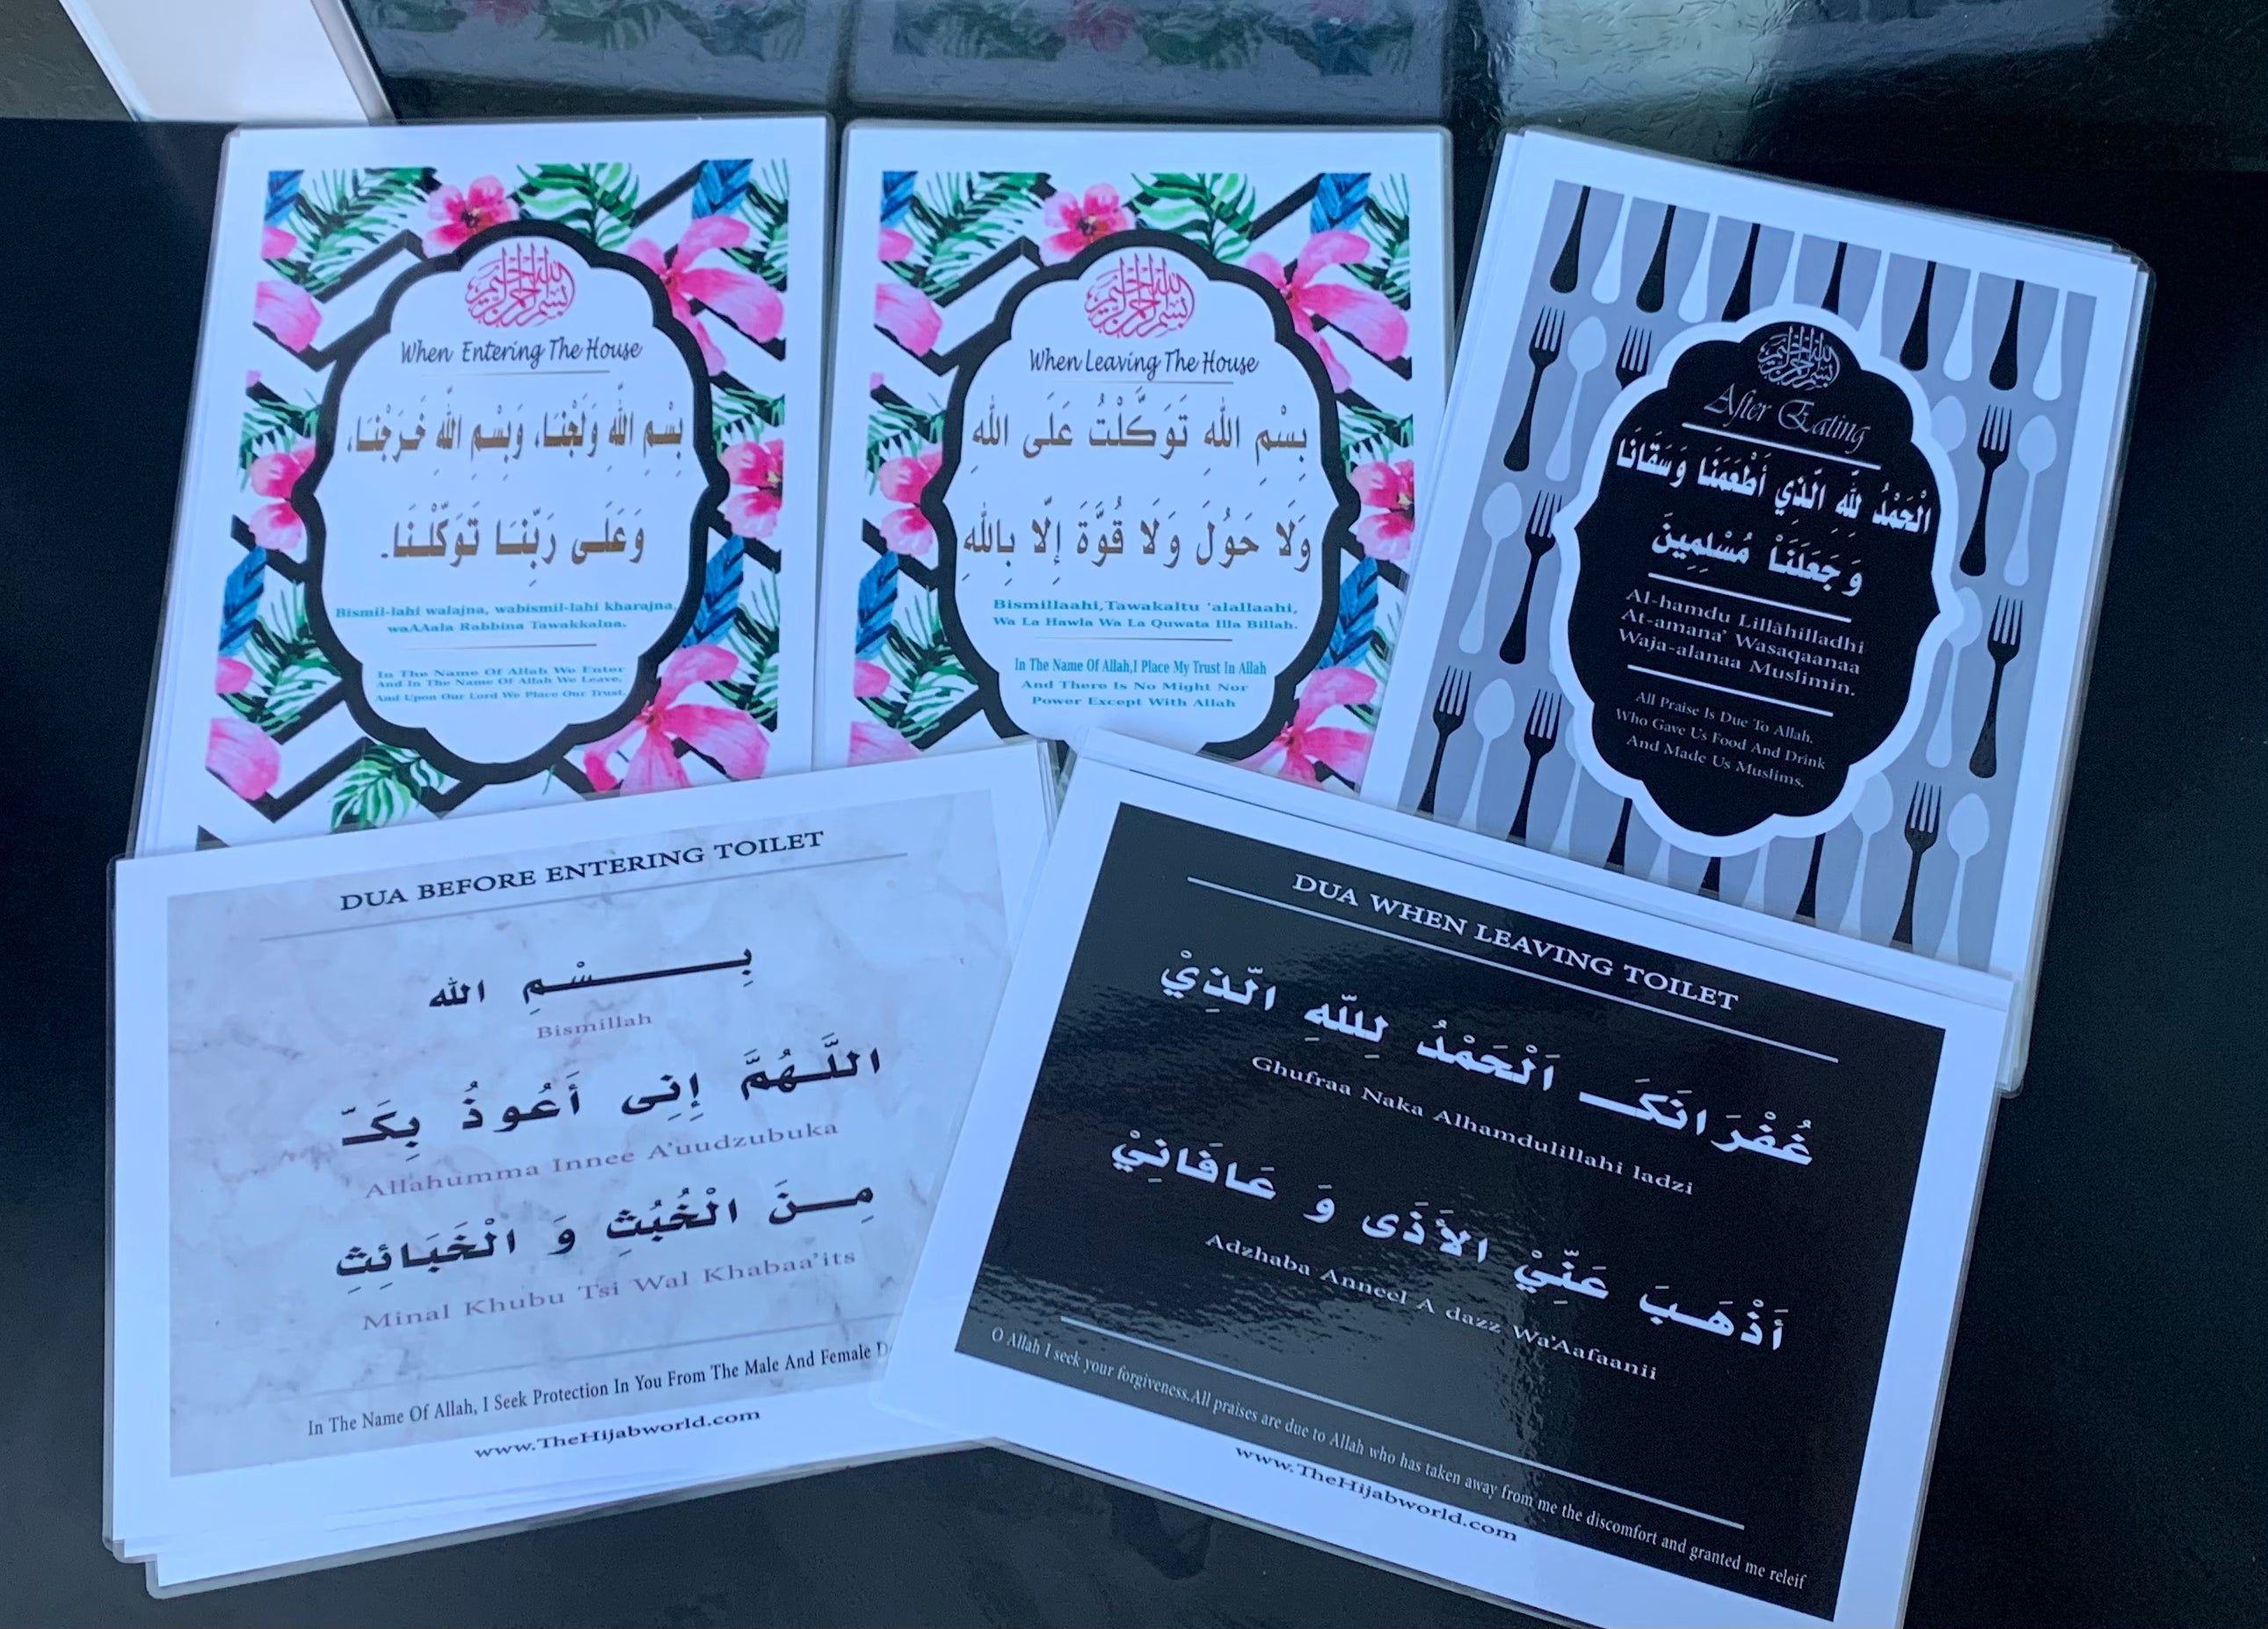 بسم الله الرحمن الرحيم
When Entering The House
بِسْمِ اللّهِ وَلَجْنَـا، وَبِسْـمِ اللّهِ خَـرَجْنـَا،
وَعَلَـى رَبِّنـَا تَوَكّلْـنَا.
Bismil-lahi walajna, wabismil-lahi kharajna,
waAAala Rabbina Tawakkalna.
In The Name Of Allah We Enter
And In The Name Of Allah We Leave,
And Upon Our Lord We Place Our Trust.
بسم الله الرحمن الرحيم
When Leaving The House
بِسْمِ اللهِ تَوَكَّلْتُ عَلَى اللهِ
وَلَا حَوْلَ وَلَا قُوَّةَ إِلَّا بِاللهِ
Bismillaahi,Tawakaltu 'alallaahi,
Wa La Hawla Wa La Quwata Illa Billah.
In The Name Of Allah,I Place My Trust In Allah
And There Is No Might Nor
Power Except With Allah
بسم الله الرحمن الرحيم
After Eating
الْحَمْدُ لِلَّهِ الَّذِي أَطْعَمَنَا وَسَقَانَا
وَجَعَلَنَا مُسْلِمِينَ
Al-hamdu Lillâhilladhi
At-amana' Wasaqaanaa
Waja-alanaa Muslimin.
All Praise Is Due To Allah,
Who Gave Us Food And Drink
And Made Us Muslims.
DUA BEFORE ENTERING TOILET
بِـــــسْـمِ الله
Bismillah
اللَّـهُمَّ إِنِى أَعُوذُ بِكَـّ
Allahumma Innee A'uudzubuka
مِــنَ الْخُبُثِ وَ الْخَبَائِثِ
Minal Khubu Tsi Wal Khabaa'its
In The Name Of Allah, I Seek Protection In You From The Male And Female D
www.TheHijabworld.com
DUA WHEN LEAVING TOILET
غُفْرَانَكَــ اَلْحَمْدُ لِلّهِ الَّذِيْ
Ghufraa Naka Alhamdulillahi ladzi
أَذْهَـبَ عَنِّيْ الاَذَى وَ عَافَانِيْ
Adzhaba Anneel A dazz Wa'Aafaanii
O Allah I seek your forgiveness.All praises are due to Allah who has taken away from me the discomfort and granted me releif
www.TheHijabworld.com